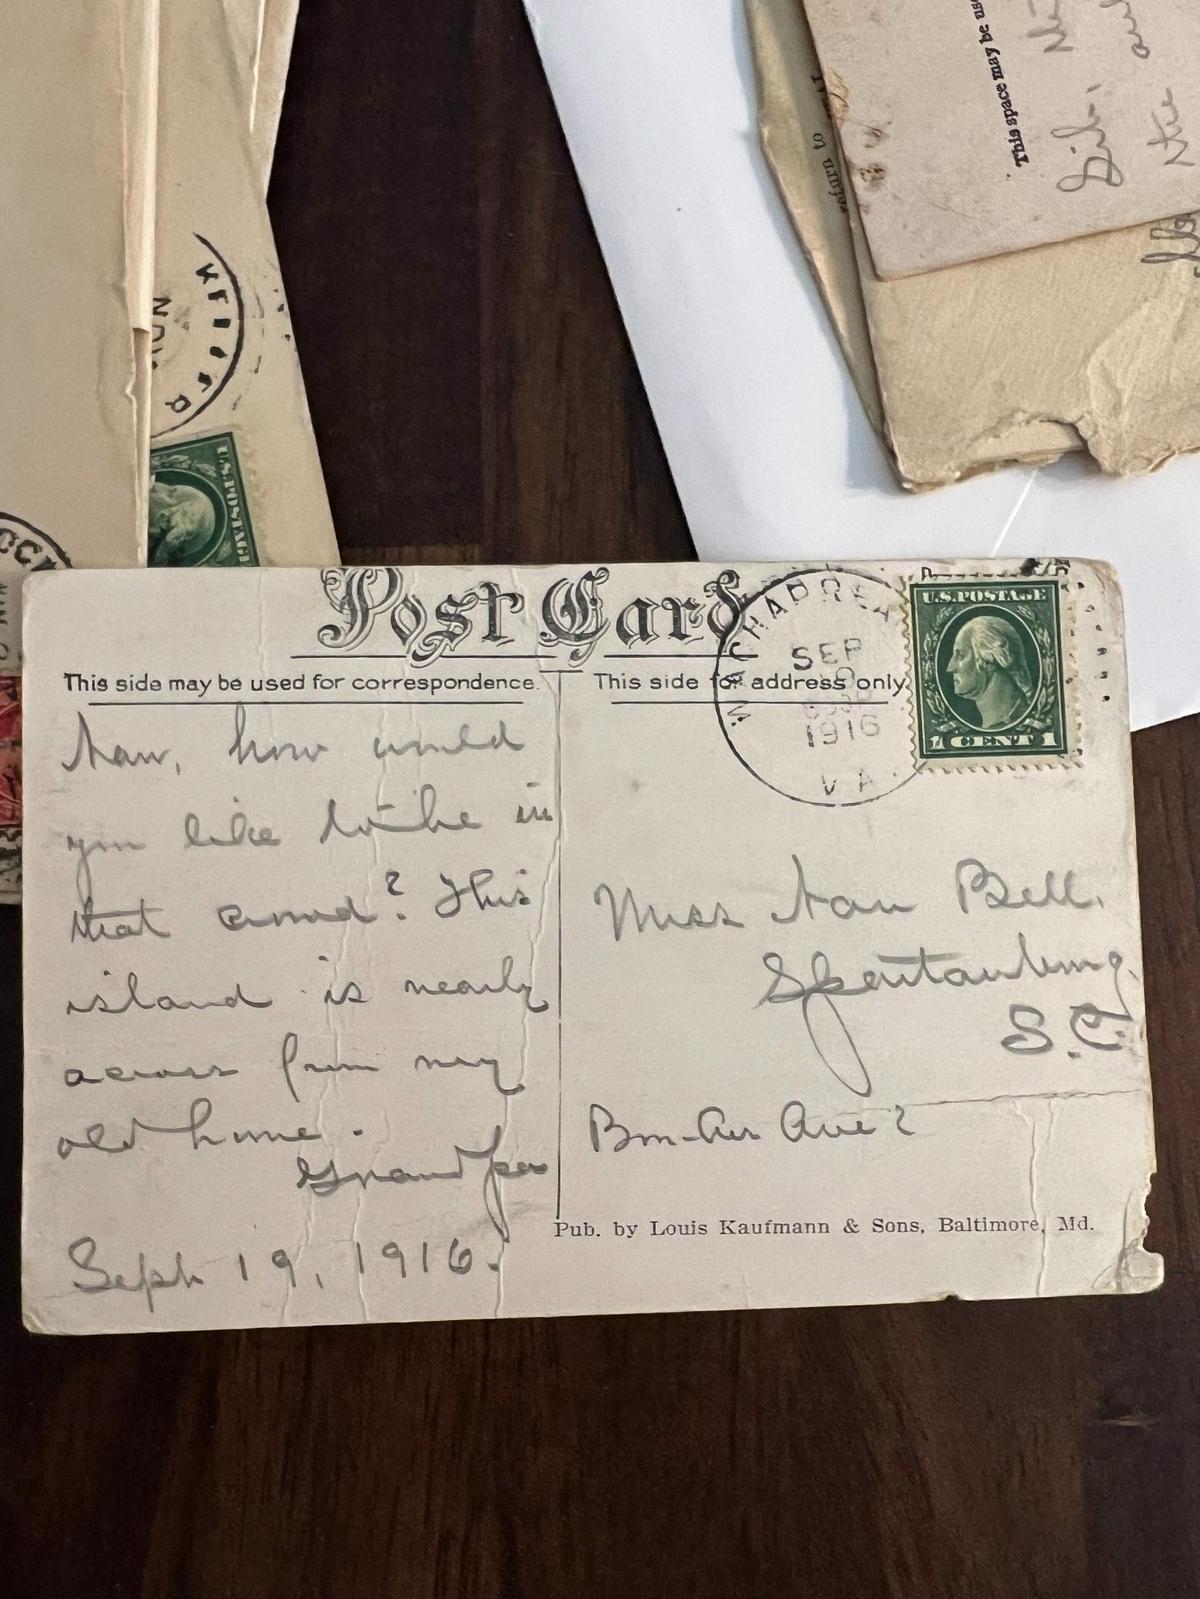 This space may be use
Sib,
return to
U.S.POSTAGE
Post Card
This side may be used for correspondence.
This side for address only.
WACHAPREA
SEP
1916
VA.
U.S.POSTAGE
1 CENT 1
Nan, how would
you like to be in
that crowd? This
island is nearly
across from my
old home.
Grandpa
Sept 19, 1916.
Miss Nan Bell,
Spartanburg,
S.C.
Bon-Air Ave?
Pub. by Louis Kaufmann & Sons, Baltimore, Md.